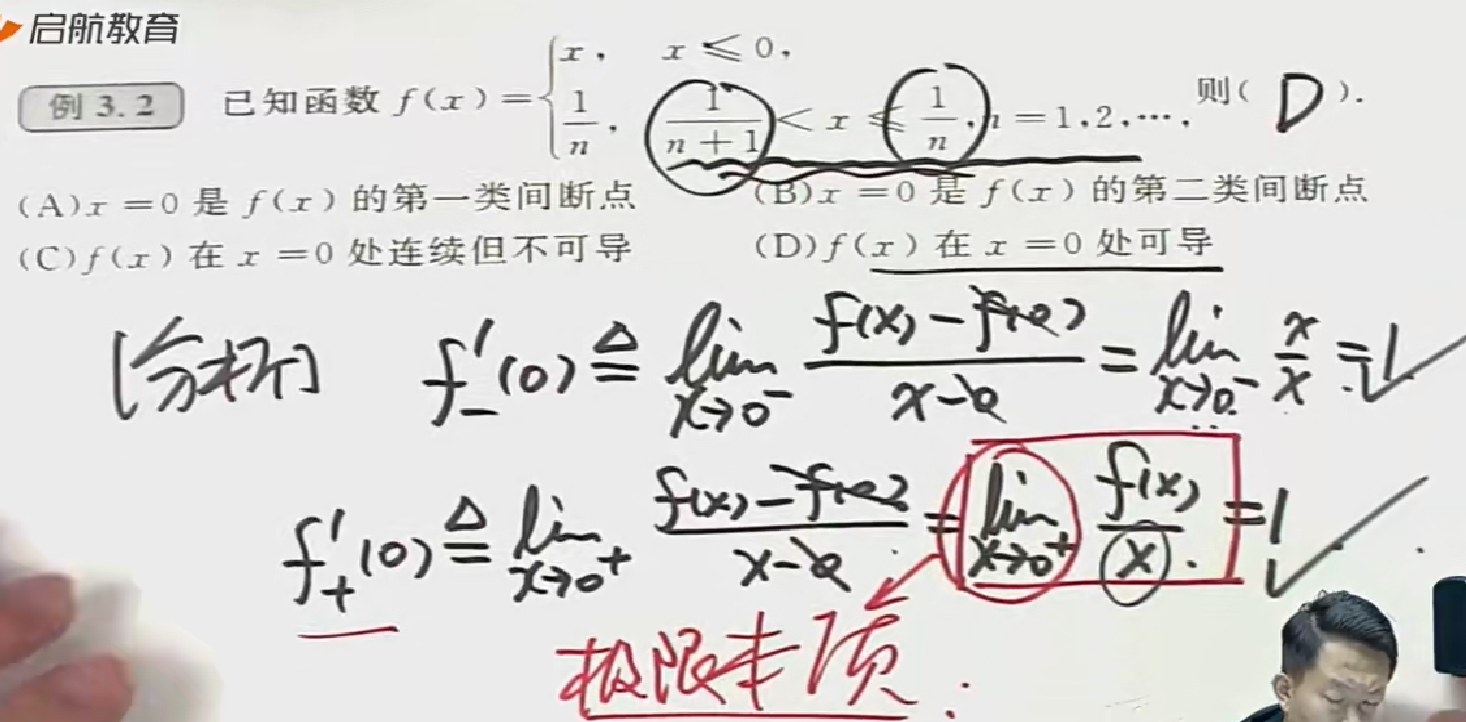 启航教育
例 3.2 已知函数 f(x)={x, x≤0, 1/n, 1/(n+1)<x≤1/n, n=1,2,…, 则( D ).
(A)x=0 是 f(x) 的第一类间断点 (B)x=0 是 f(x) 的第二类间断点
(C)f(x) 在 x=0 处连续但不可导 (D)f(x) 在 x=0 处可导
[分析] f′₋(0) ≜ lim x→0⁻ (f(x)-f(0))/(x-0) = lim x→0⁻ x/x = 1
f′₊(0) ≜ lim x→0⁺ (f(x)-f(0))/(x-0) = lim x→0⁺ f(x)/x = 1
极限本质